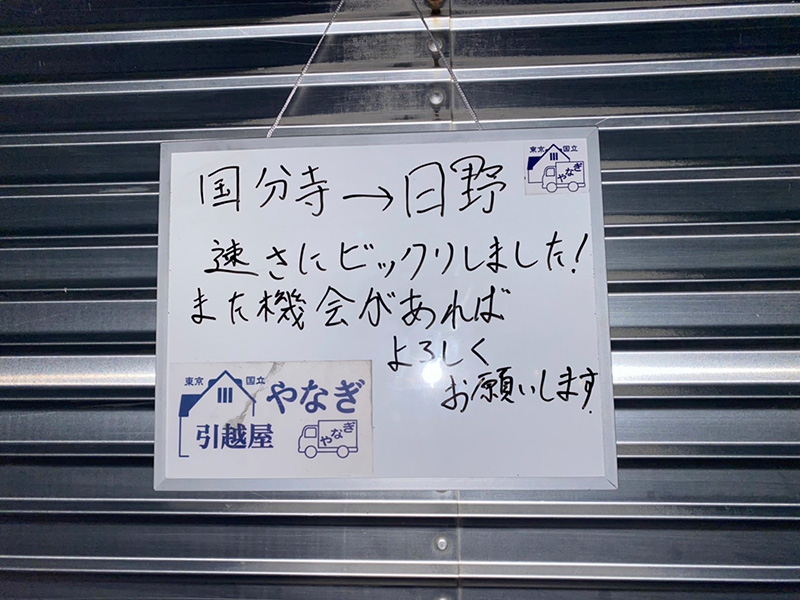 国分寺→日野
東京 国立
やなぎ
速さにビックリしました!
また機会があれば
よろしく
お願いします
東京 国立
やなぎ
引越屋
やなぎ